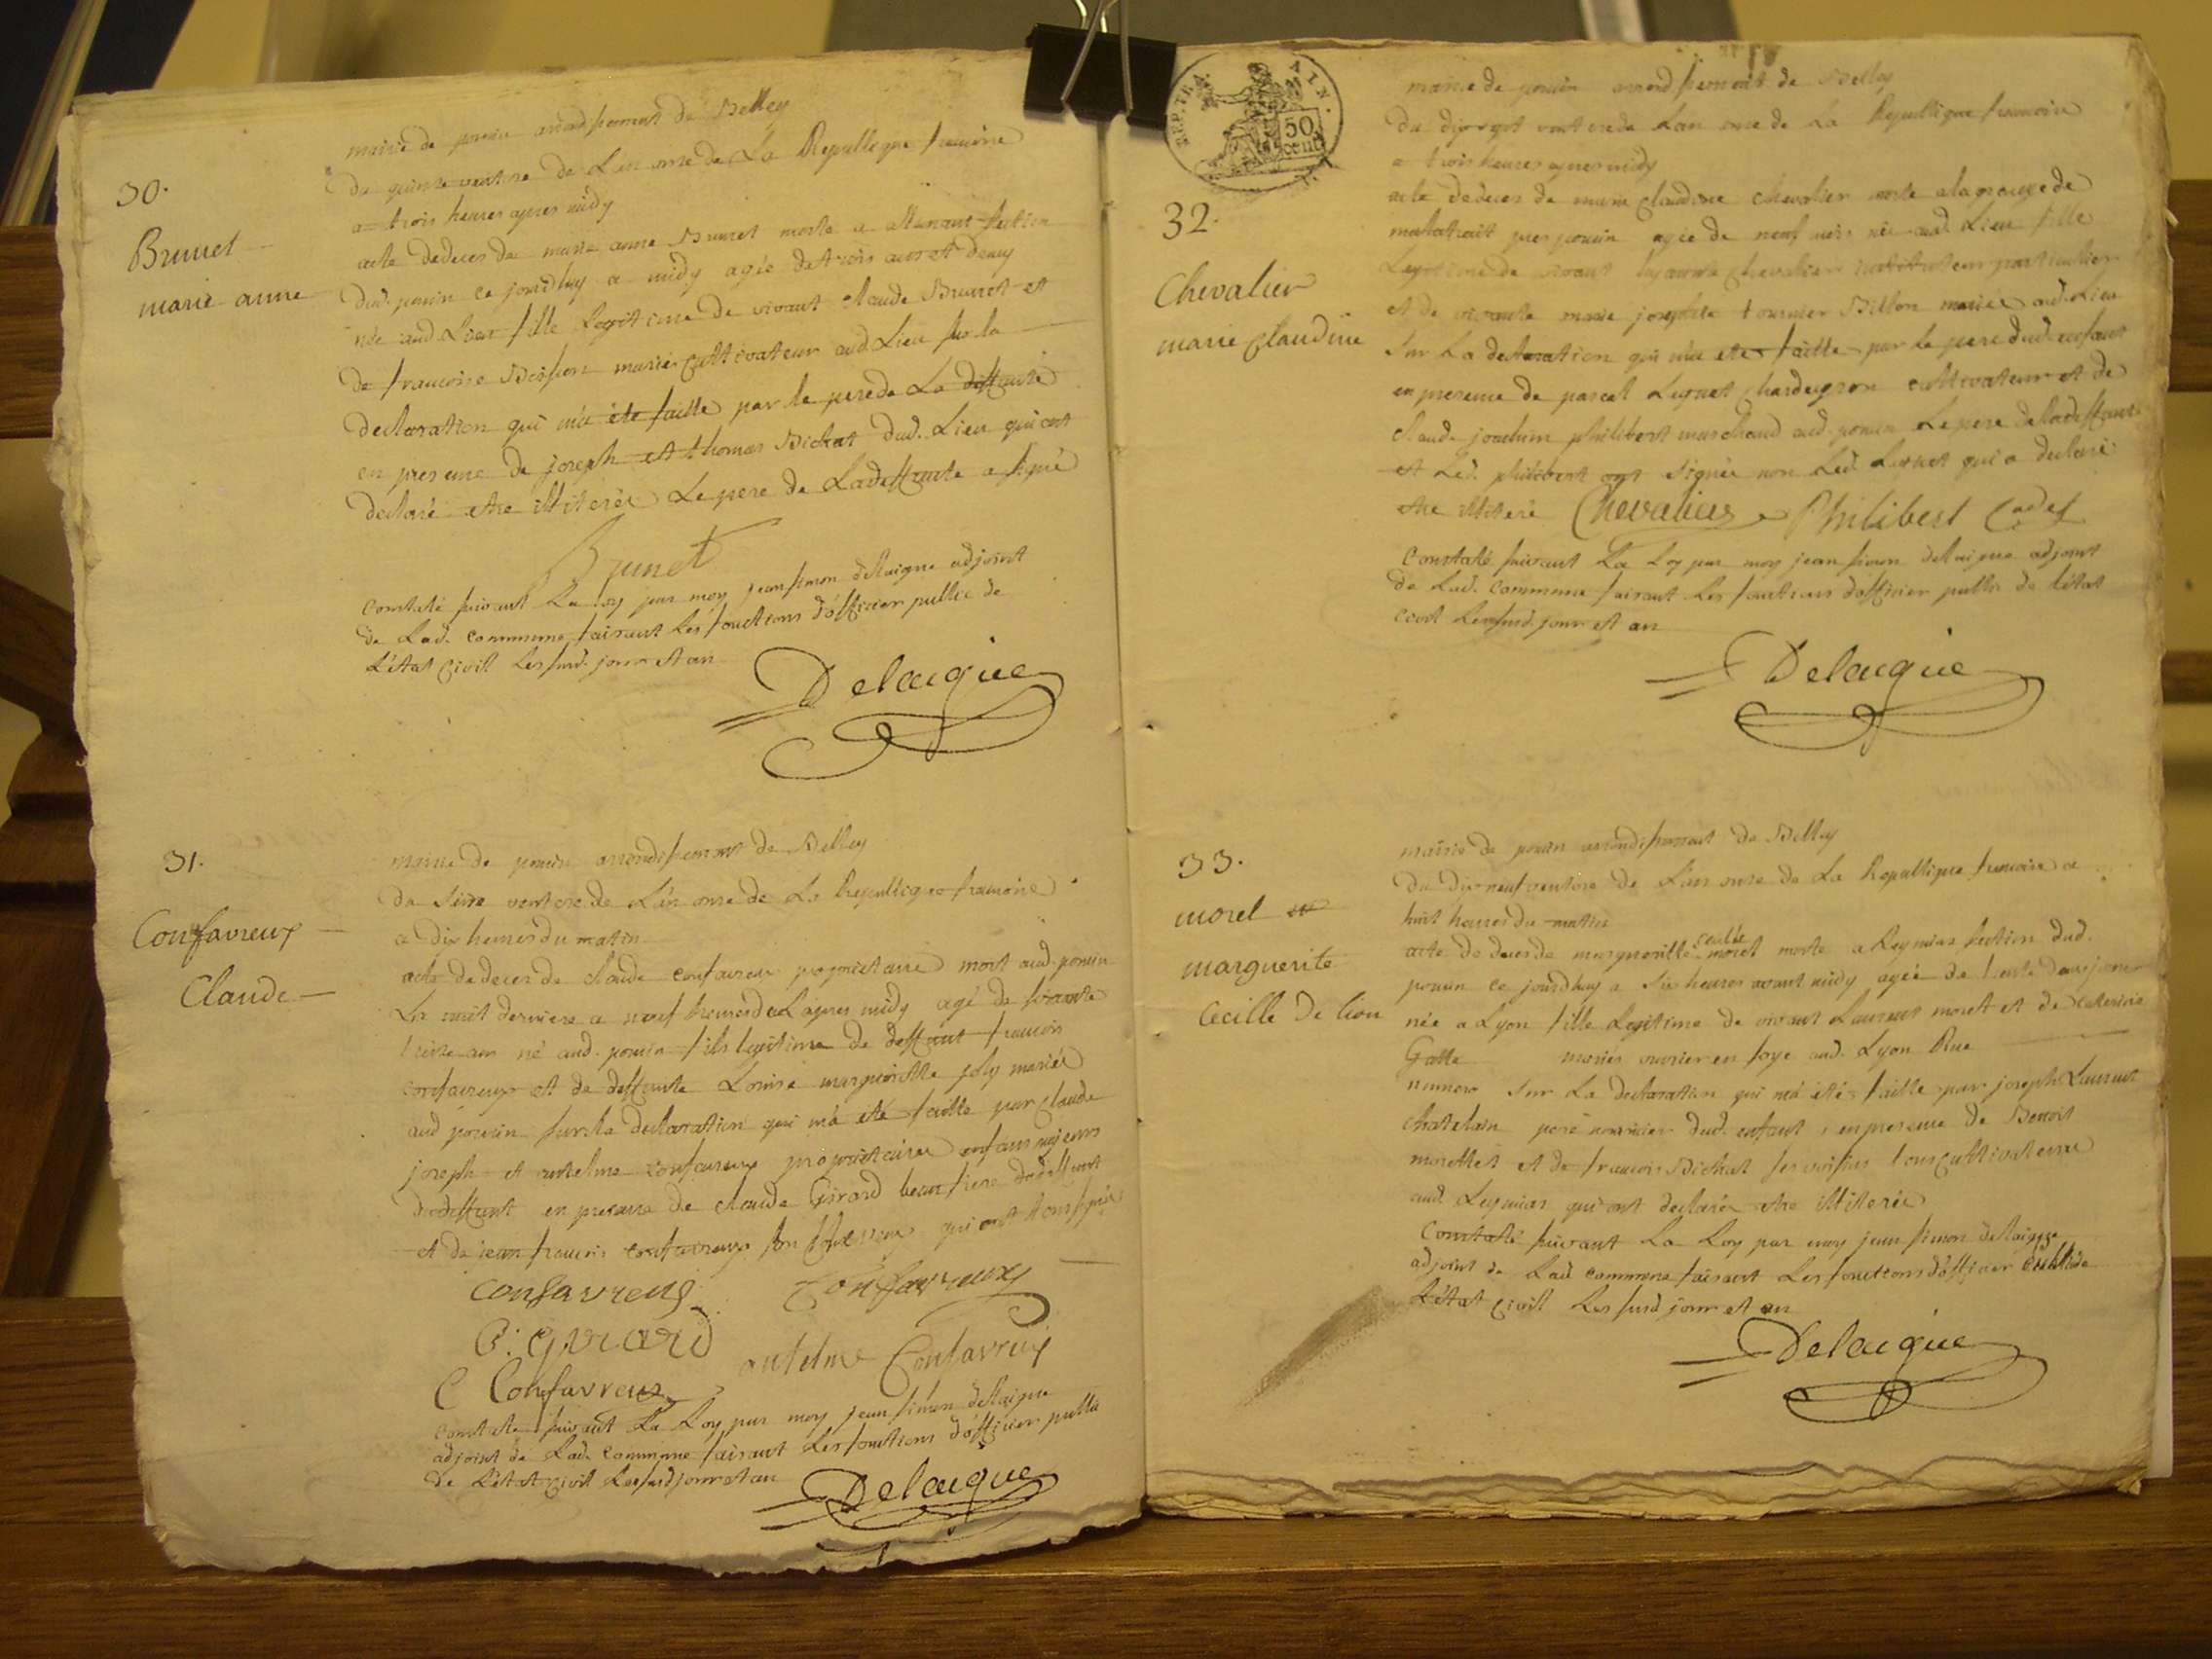 30.
Brunet
marie anne
mairie de poncin arrondissement de Belley
du quinze ventose de L'an onze de La Republique francoise
a trois heures apres midy
acte de deces de marie anne Brunet morte a section
dud. poncin ce jourdhuy a midy agée de trois ans et demy
née aud. Lieu fille Legitime de vivant claude Brunet et
de francoise mariés cultivateurs aud. Lieu sur la
declaration qui m'a été faitte par le pere de La deffunte
en presence de joseph et thomas Bichat dud. Lieu qui ont
declaré etre illiterés Le pere de La deffunte a signé
Brunet
Constaté suivant La Loy par moy jean simon delaigue adjoint
de Lad. commune faisant Les fonctions d'officier public de
L'état civil Les susd. jour et an
Delaigue
31.
Confavreux
Claude
mairie de poncin arrondissement de Belley
du seize ventose de L'an onze de La Republique francoise
a dix heures du matin
acte de deces de claude confavreux proprietaire mort aud. poncin
La nuit derniere a neuf heures de L'apres midy agé de soixante
treize ans né aud. poncin fils legitime de deffunt francois
confavreux et de deffunte Louise margueritte joly mariés
aud poncin sur la declaration qui m'a été faitte par claude
joseph et antelme confavreux proprietaires enfans majeurs
du deffunt en presence de claude Girard beau frere du deffunt
et de jean francois confavreux son qui ont tous signé
Confavreux Confavreux
C. Girard
antelme Confavreux
C Confavreux
constaté suivant La Loy par moy jean simon delaigue
adjoint de Lad. commune faisant Les fonctions d'officier public
de L'état civil Les susd jour et an
Delaigue
REP. FRA.
AIN.
50
cent
32.
Chevalier
marie claudine
mairie de poncin arrondissement de Belley
du dix sept ventose de L'an onze de La Republique francoise
a trois heures apres midy
acte de deces de marie claudine chevalier morte a la grange de
malatrait pres poncin agée de neuf mois née aud. Lieu fille
Legitime de vivant chevalier instituteur particulier
et de vivante marie josephte tournier Billon mariés aud. Lieu
sur La declaration qui m'a été faitte par le pere dud. enfant
en presence de pascal cultivateur et de
claude joachim philibert marchand aud. poncin Le pere de la deffunte
et Led. philibert ont signés non Led. qui a declaré
etre illiteré Chevalier Philibert Cadet
Constaté suivant La Loy par moy jean simon delaigue adjoint
de Lad. commune faisant Les fonctions d'officier public de l'état
civil Les susd. jour et an
Delaigue
33.
morel
marguerite
cecille De lion
mairie de poncin arrondissement de Belley
du dix-neuf ventose de L'an onze de La Republique francoise a
huit heures du matin
acte de deces de margueritte cecile morel morte a Leymiat section dud.
poncin ce jourdhuy a six heures avant midy agée de trente deux jours
née a Lyon fille Legitime de vivant Laurent morel et de caterine
Gatte mariés ouvrier en soye aud. Lyon Rue
numero sur La declaration qui m'a été faitte par joseph Laurent
chatelain pere nourricier dud. enfant en presence de Benoit
morettet et de francois Bichat ses voisins tous cultivateurs
aud. Leymiat qui ont declarés etre illiterés
Constaté suivant La Loy par moy jean simon delaigue
adjoint de Lad commune faisant Les fonctions d'officier public de
L'état civil Les susd jour et an
Delaigue